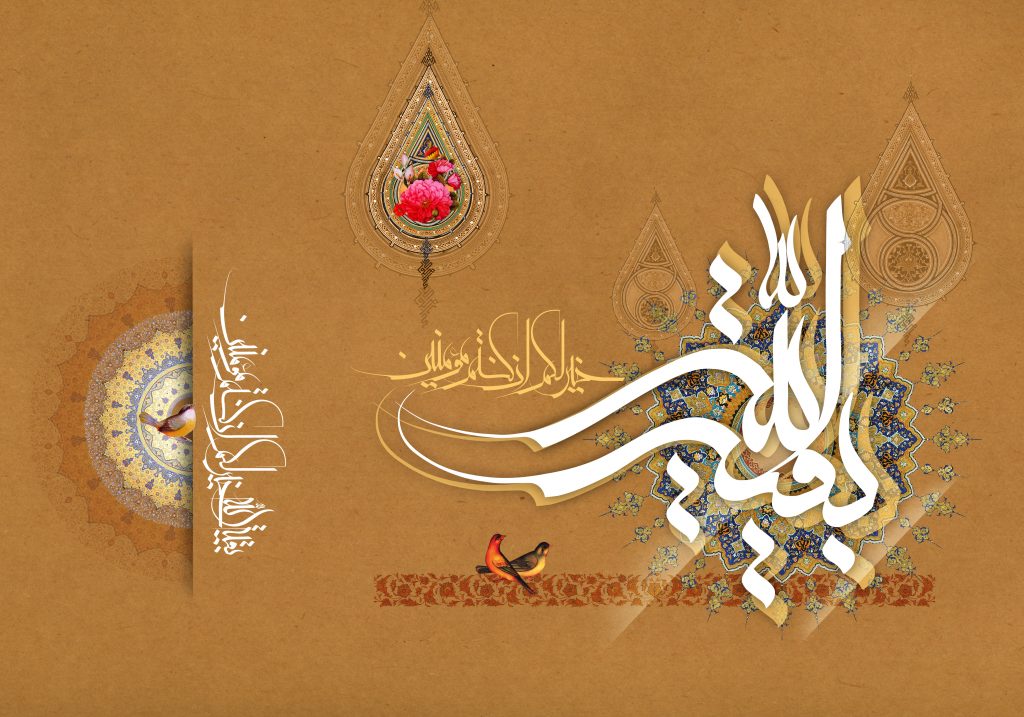 بقیت الله
خیر لکم ان کنتم مومنین
بقیت الله خیر لکم ان کنتم مومنین